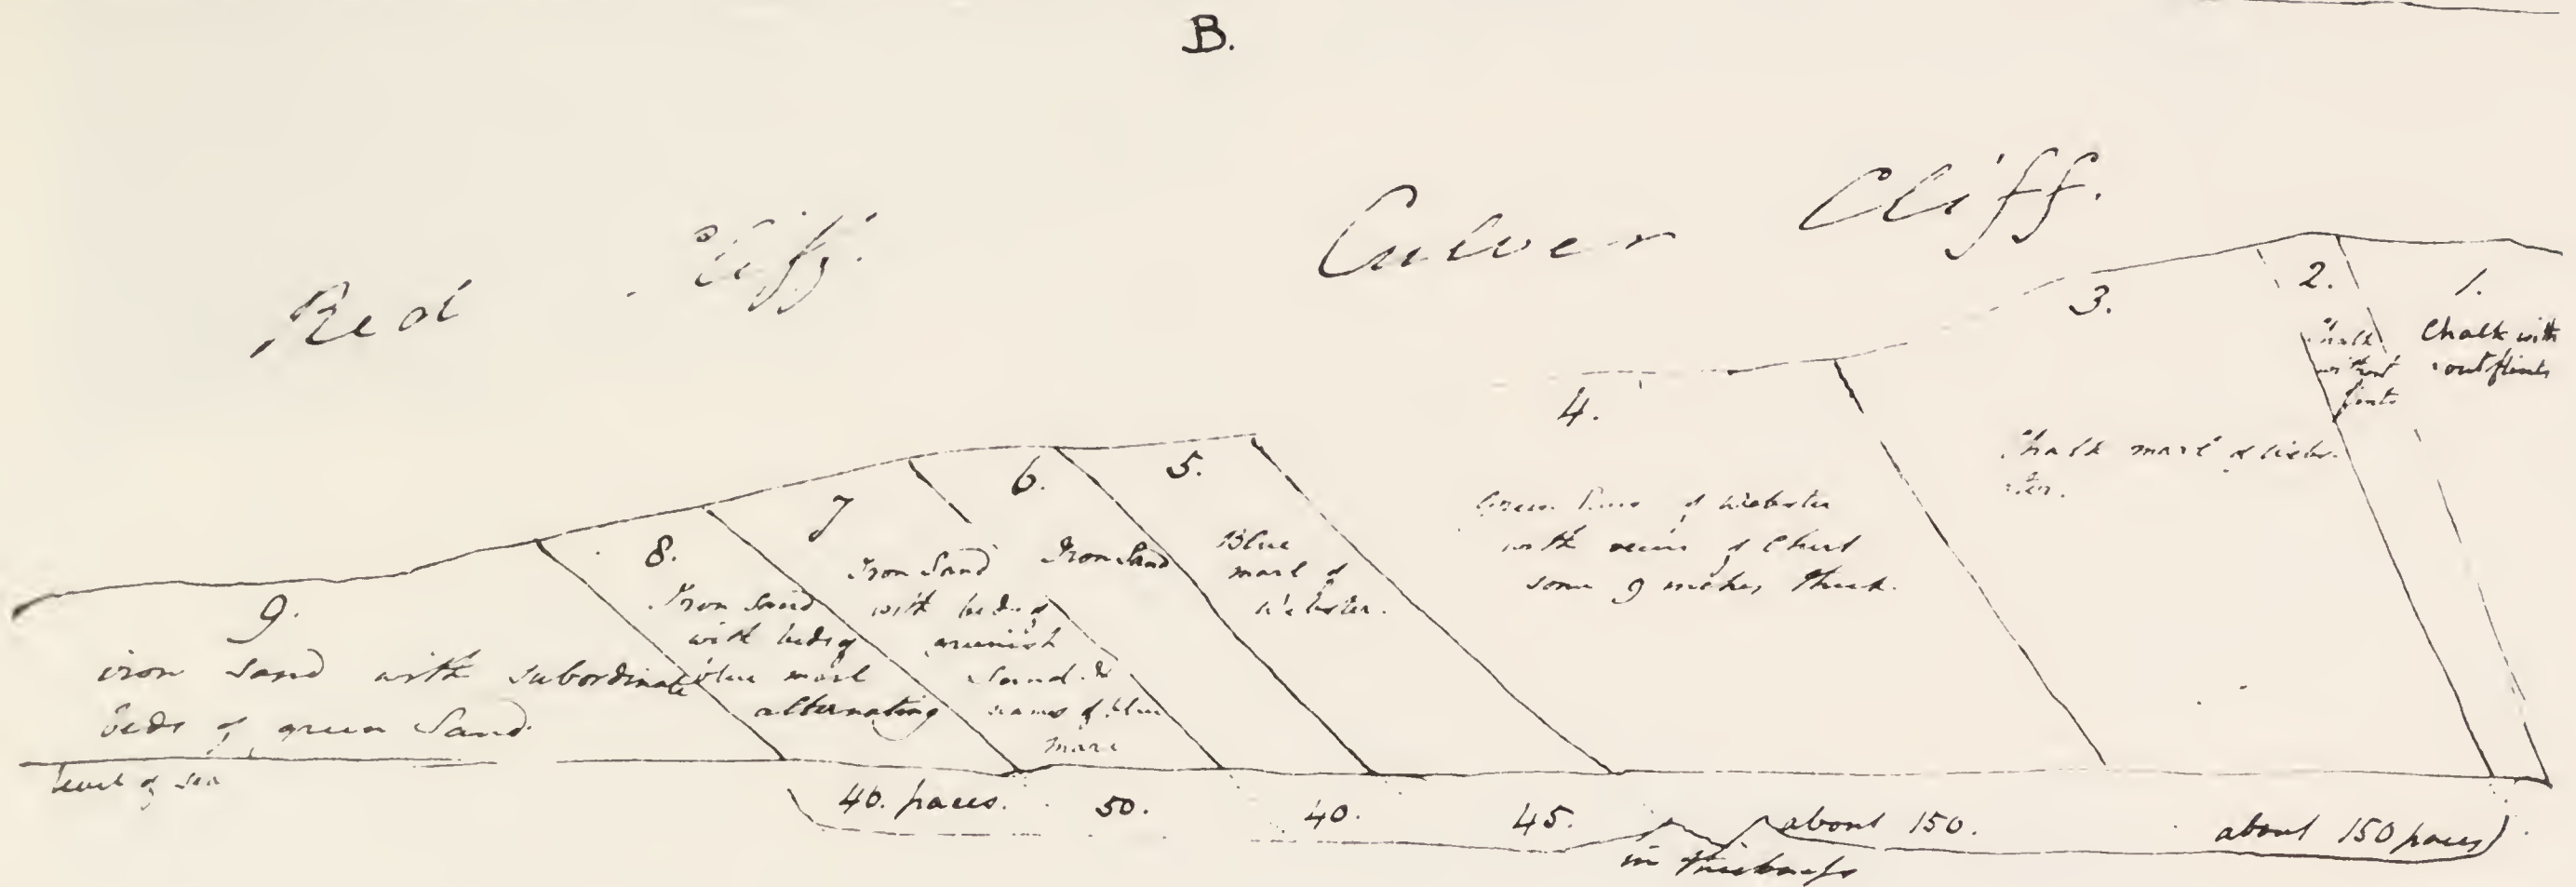 B.
Red Cliff.
Culver Cliff.
1.
Chalk with
outflints
2.
Chalk
without
flints
3.
Chalk marl of Webs.
ter.
4.
Green Sand of Webster
with veins of Chert
some 9 inches thick.
5.
Blue
marl of
Webster.
6.
Iron Sand
7
Iron Sand
with beds of
greenish
Sand &
of blue
marl
8.
Iron Sand
with beds of
blue marl
alternating
9.
iron Sand with subordinate
beds of green Sand.
level of sea
40. paces. 50. 40. 45. about 150. about 150 paces
in thickness